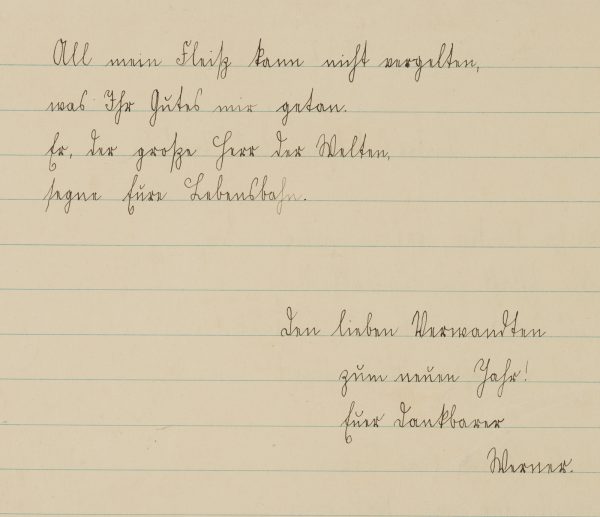 All mein Fleiß kann nicht vergelten,
was Ihr Gutes mir getan.
Er, der große Herr der Welten,
segne Eure Lebensbahn.
Den lieben Verwandten
zum neuen Jahr!
Euer dankbarer
Werner.